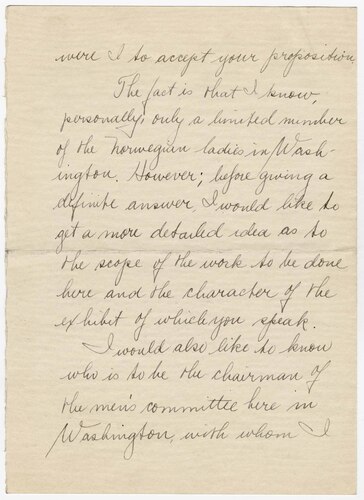 were I to accept your proposition
The fact is that I know,
personally, only a limited number
of the Norwegian ladies in Wash-
ington. However; before giving a
definite answer, I would like to
get a more detailed idea as to
the scope of the work to be done
here and the character of the
exhibit of which you speak.
I would also like to know
who is to be the chairman of
the men's committee here in
Washington, with whom I